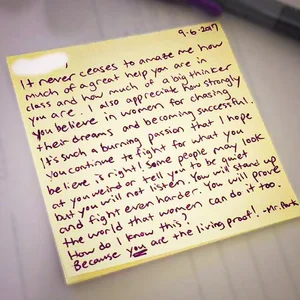 9-6-2017
It never ceases to amaze me how
much of a great help you are in
class and how much of a big thinker
you are. I also appreciate how strongly
you believe in women for chasing
their dreams and becoming successful.
It's such a burning passion that I hope
you continue to fight for what you
believe is right! Some people may look
at you weird or tell you to be quiet
but you will not listen. You will stand up
and fight even harder. You will prove
the world that women can do it too.
How do I know this?
Because you are the living proof! -Mr. Park